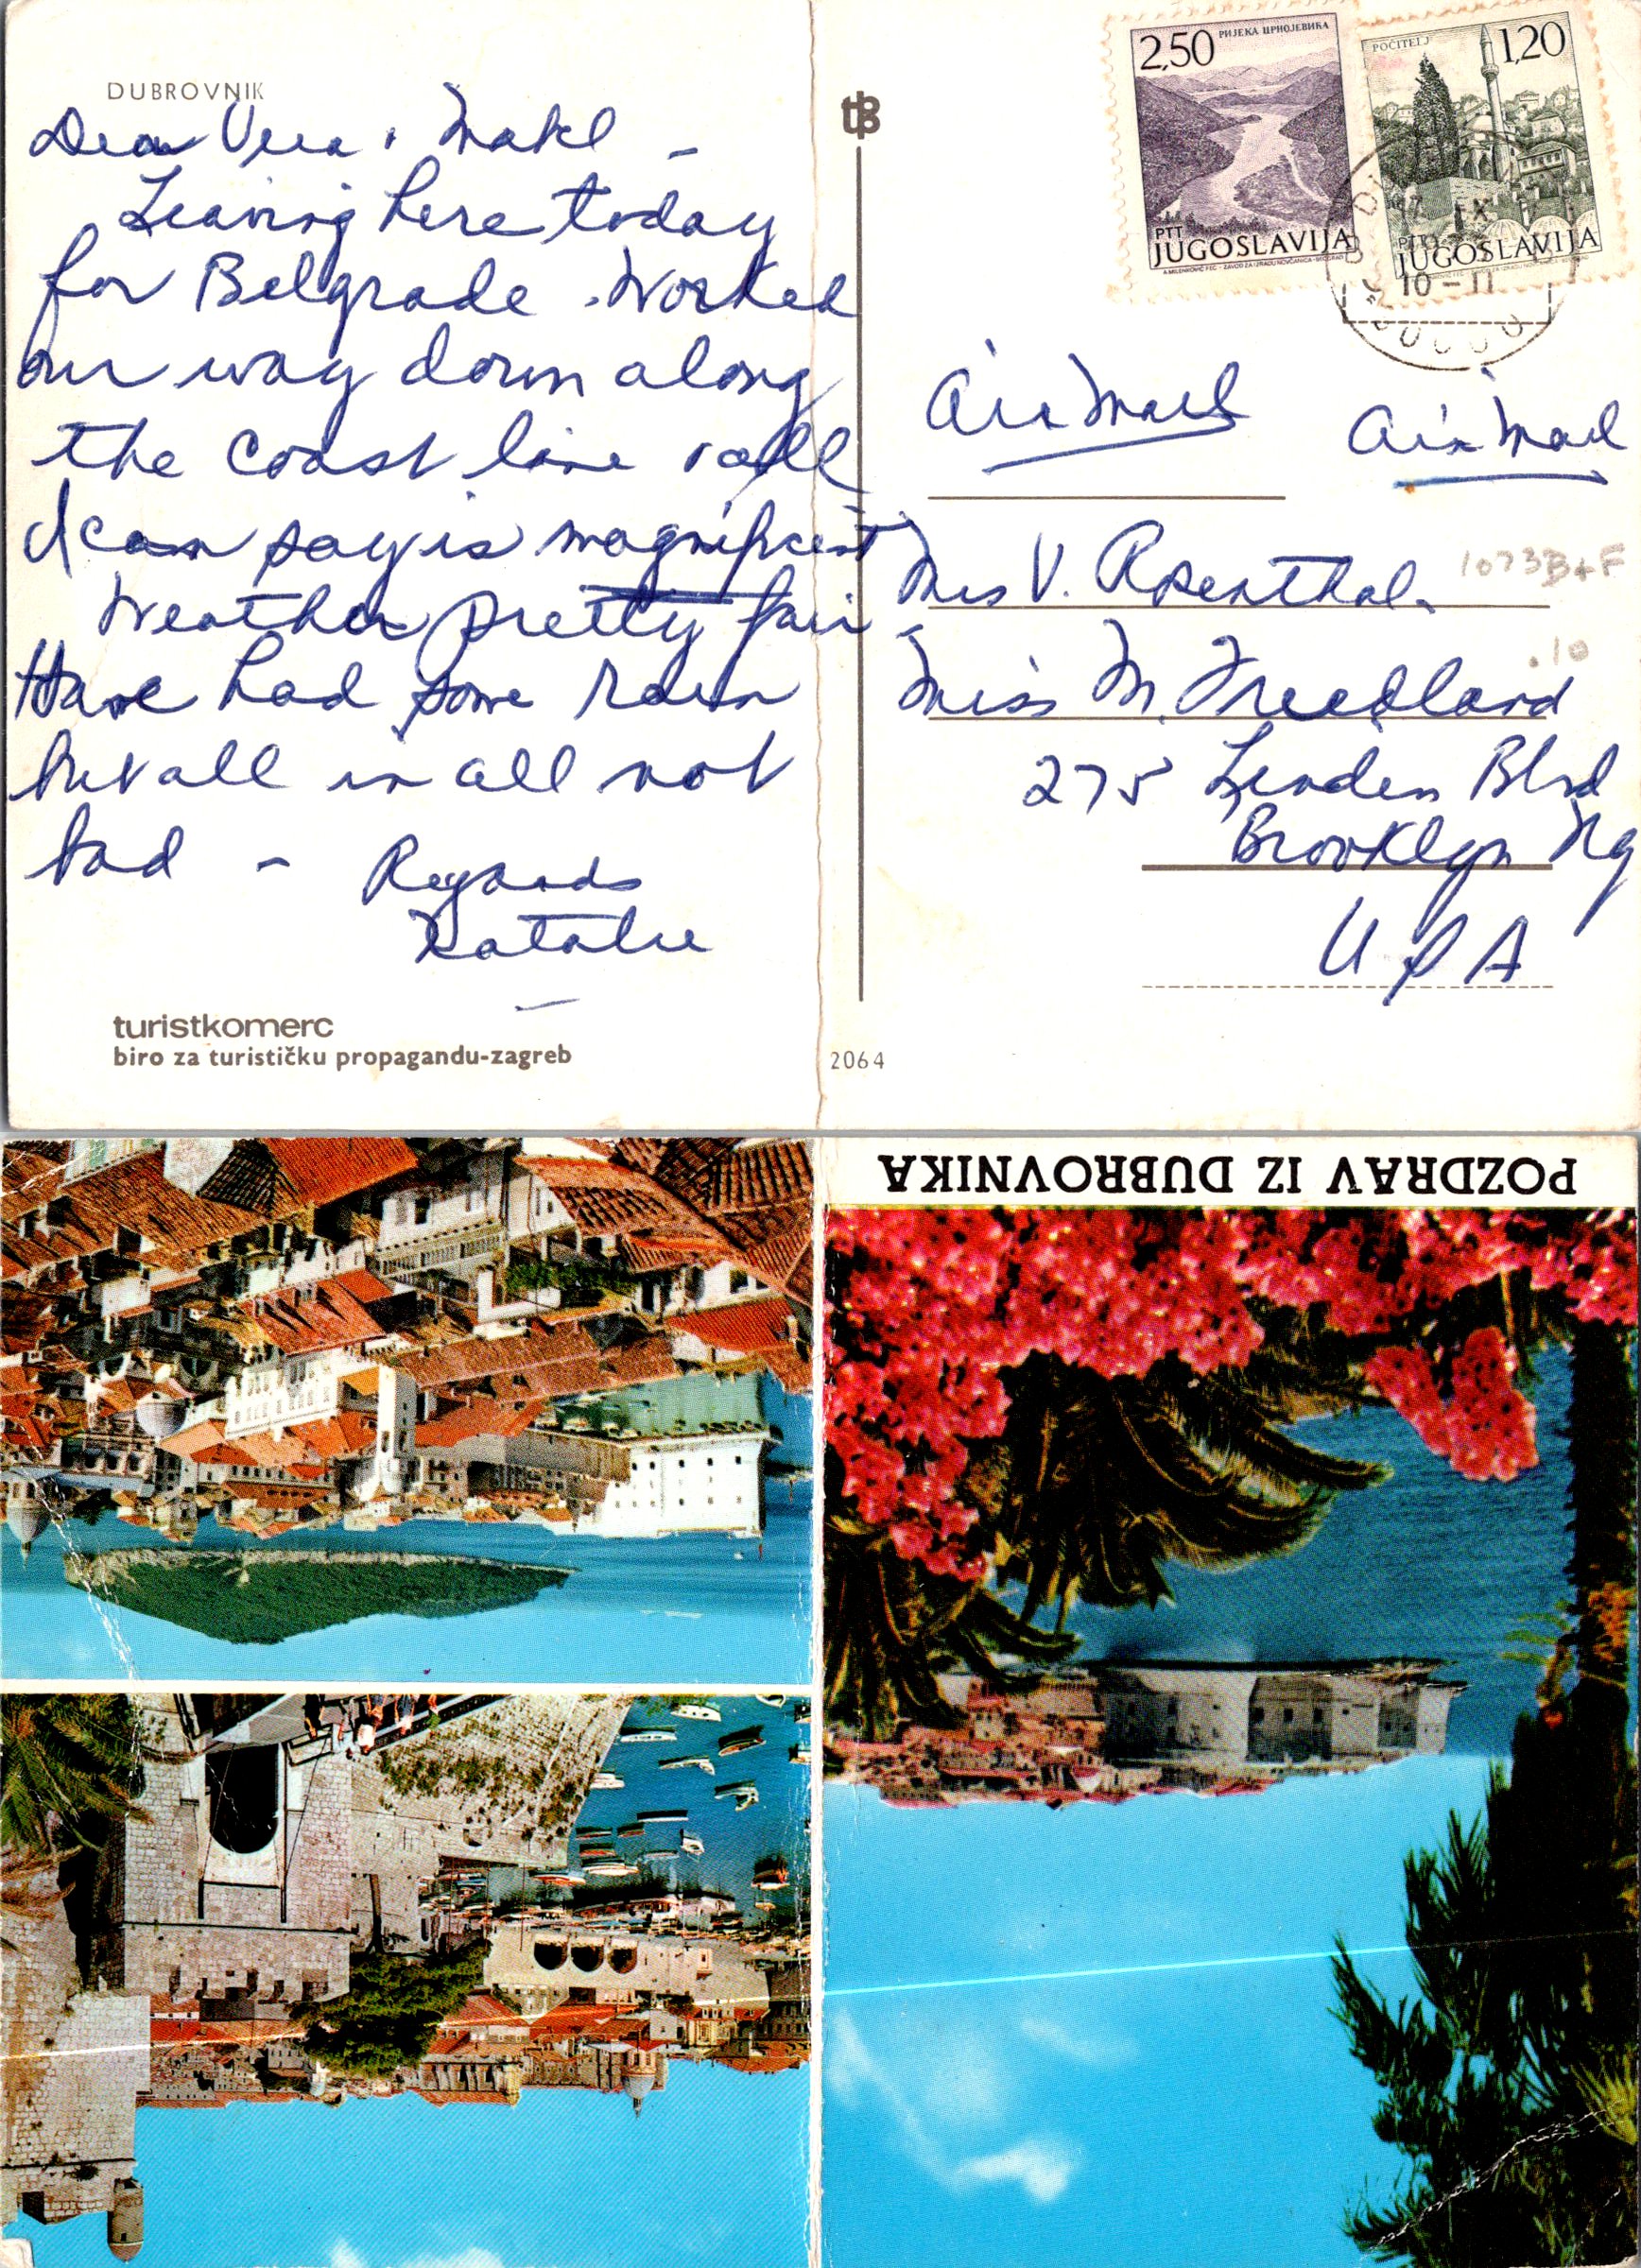 DUBROVNIK
Dear Vera & Mabel -
Leaving here today
for Belgrade. Worked
our way down along
the coast line & all
I can say is magnificent
Weather pretty fair
Have had some rain
but all in all not
bad -
Regards
Natalie
turistkomerc
biro za turističku propagandu-zagreb
2064
tB
2,50
РИЈЕКА ЦРНОЈЕВИЋА
PTT
JUGOSLAVIJA
POČITELJ
1,20
PTT
JUGOSLAVIJA
10-11
Air Mail
Air Mail
Mrs V. Rosenthal
1073B+F
Miss M. Freedland
.10
275 Linden Blvd
Brooklyn Ny
U S A
POZDRAV IZ DUBROVNIKA